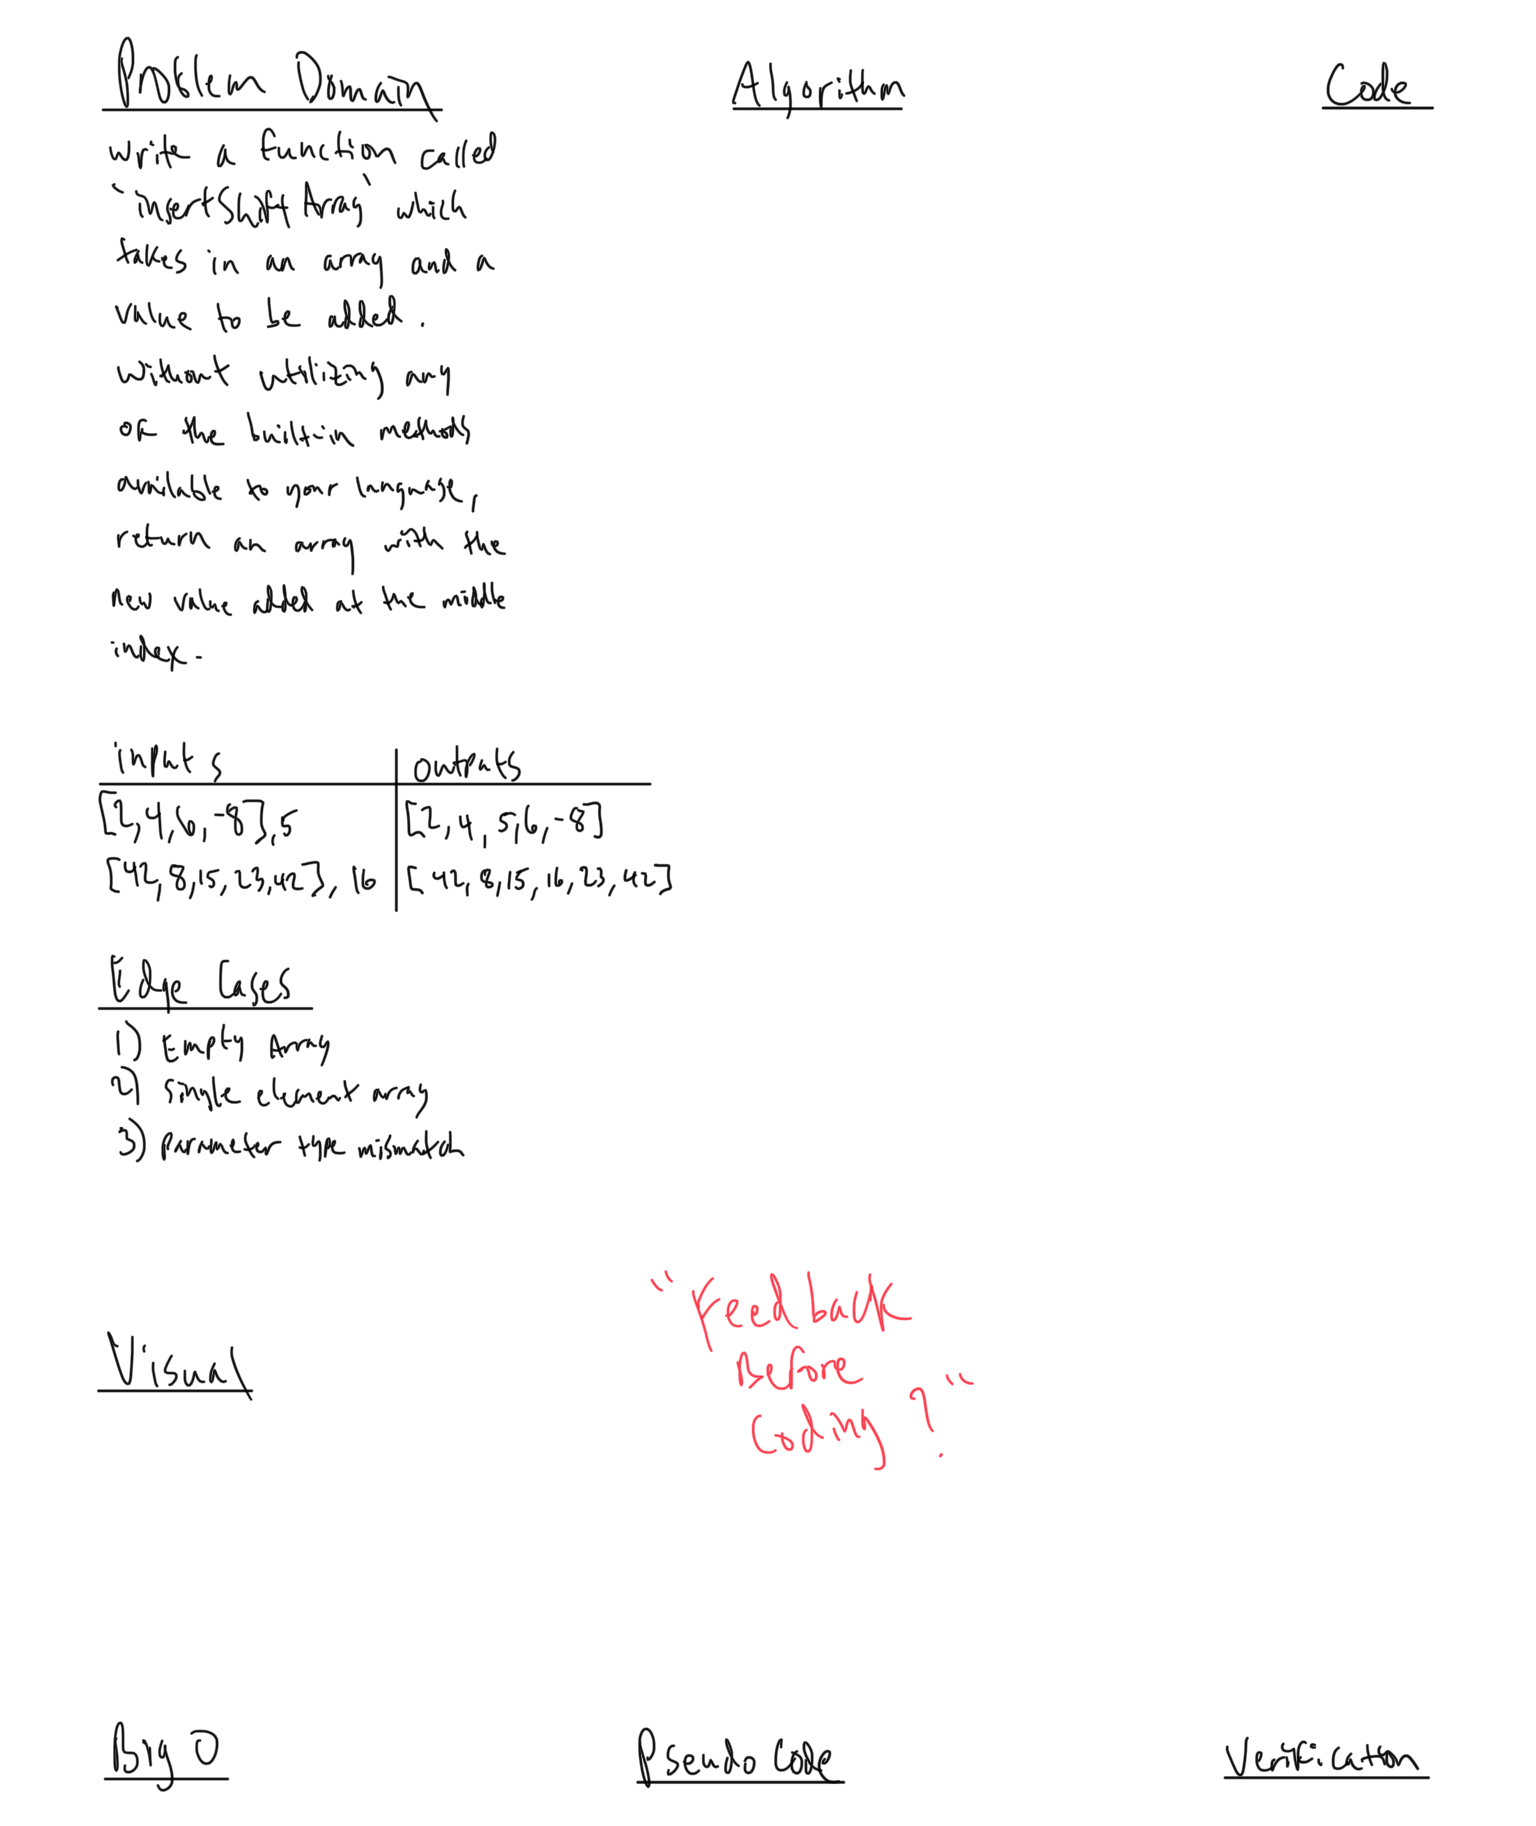 Problem Domain
write a function called
`insertShiftArray` which
takes in an array and a
value to be added.
Without utilizing any
of the built-in methods
available to your language,
return an array with the
new value added at the middle
index.
inputs | outputs
[2,4,6,-8],5 | [2,4,5,6,-8]
[42,8,15,23,42], 16 | [42,8,15,16,23,42]
Edge Cases
1) Empty Array
2) single element array
3) parameter type mismatch
Visual
Big O
Algorithm
"Feedback
Before
Coding?"
Pseudo Code
Code
Verification